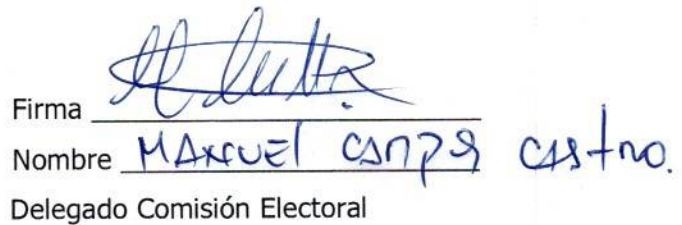 Firma
Nombre MANUEL CAMPOS CAStro.
Delegado Comisión Electoral